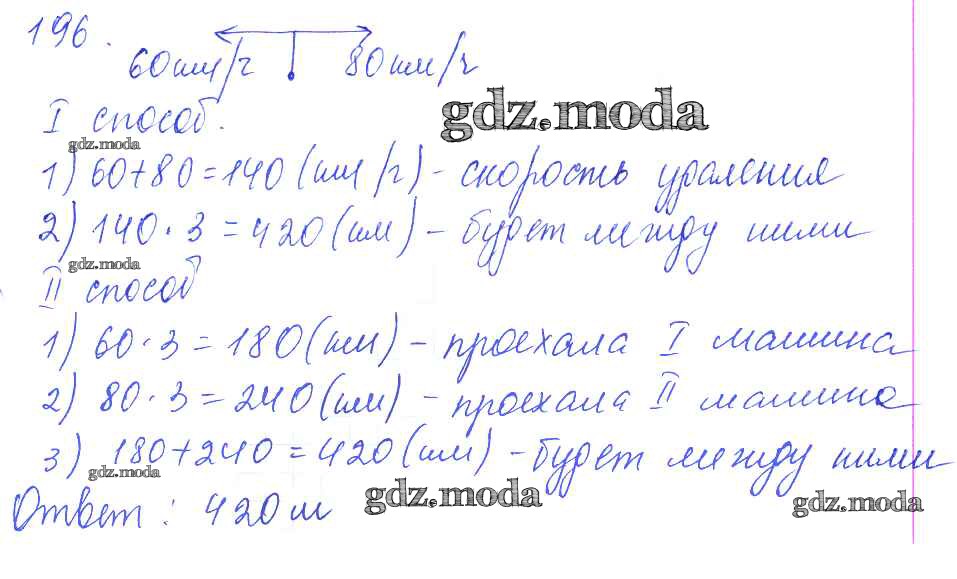 196.
60км/ч 80км/ч
I способ.
gdz.moda
gdz.moda
1) 60+80=140(км/ч) - скорость удаления
2) 140·3=420(км) - будет между ними
gdz.moda
II способ
1) 60·3=180(км) - проехала I машина
2) 80·3=240(км) - проехала II машина
3) 180+240=420(км) - будет между ними
gdz.moda
Ответ: 420м
gdz.moda
gdz.moda